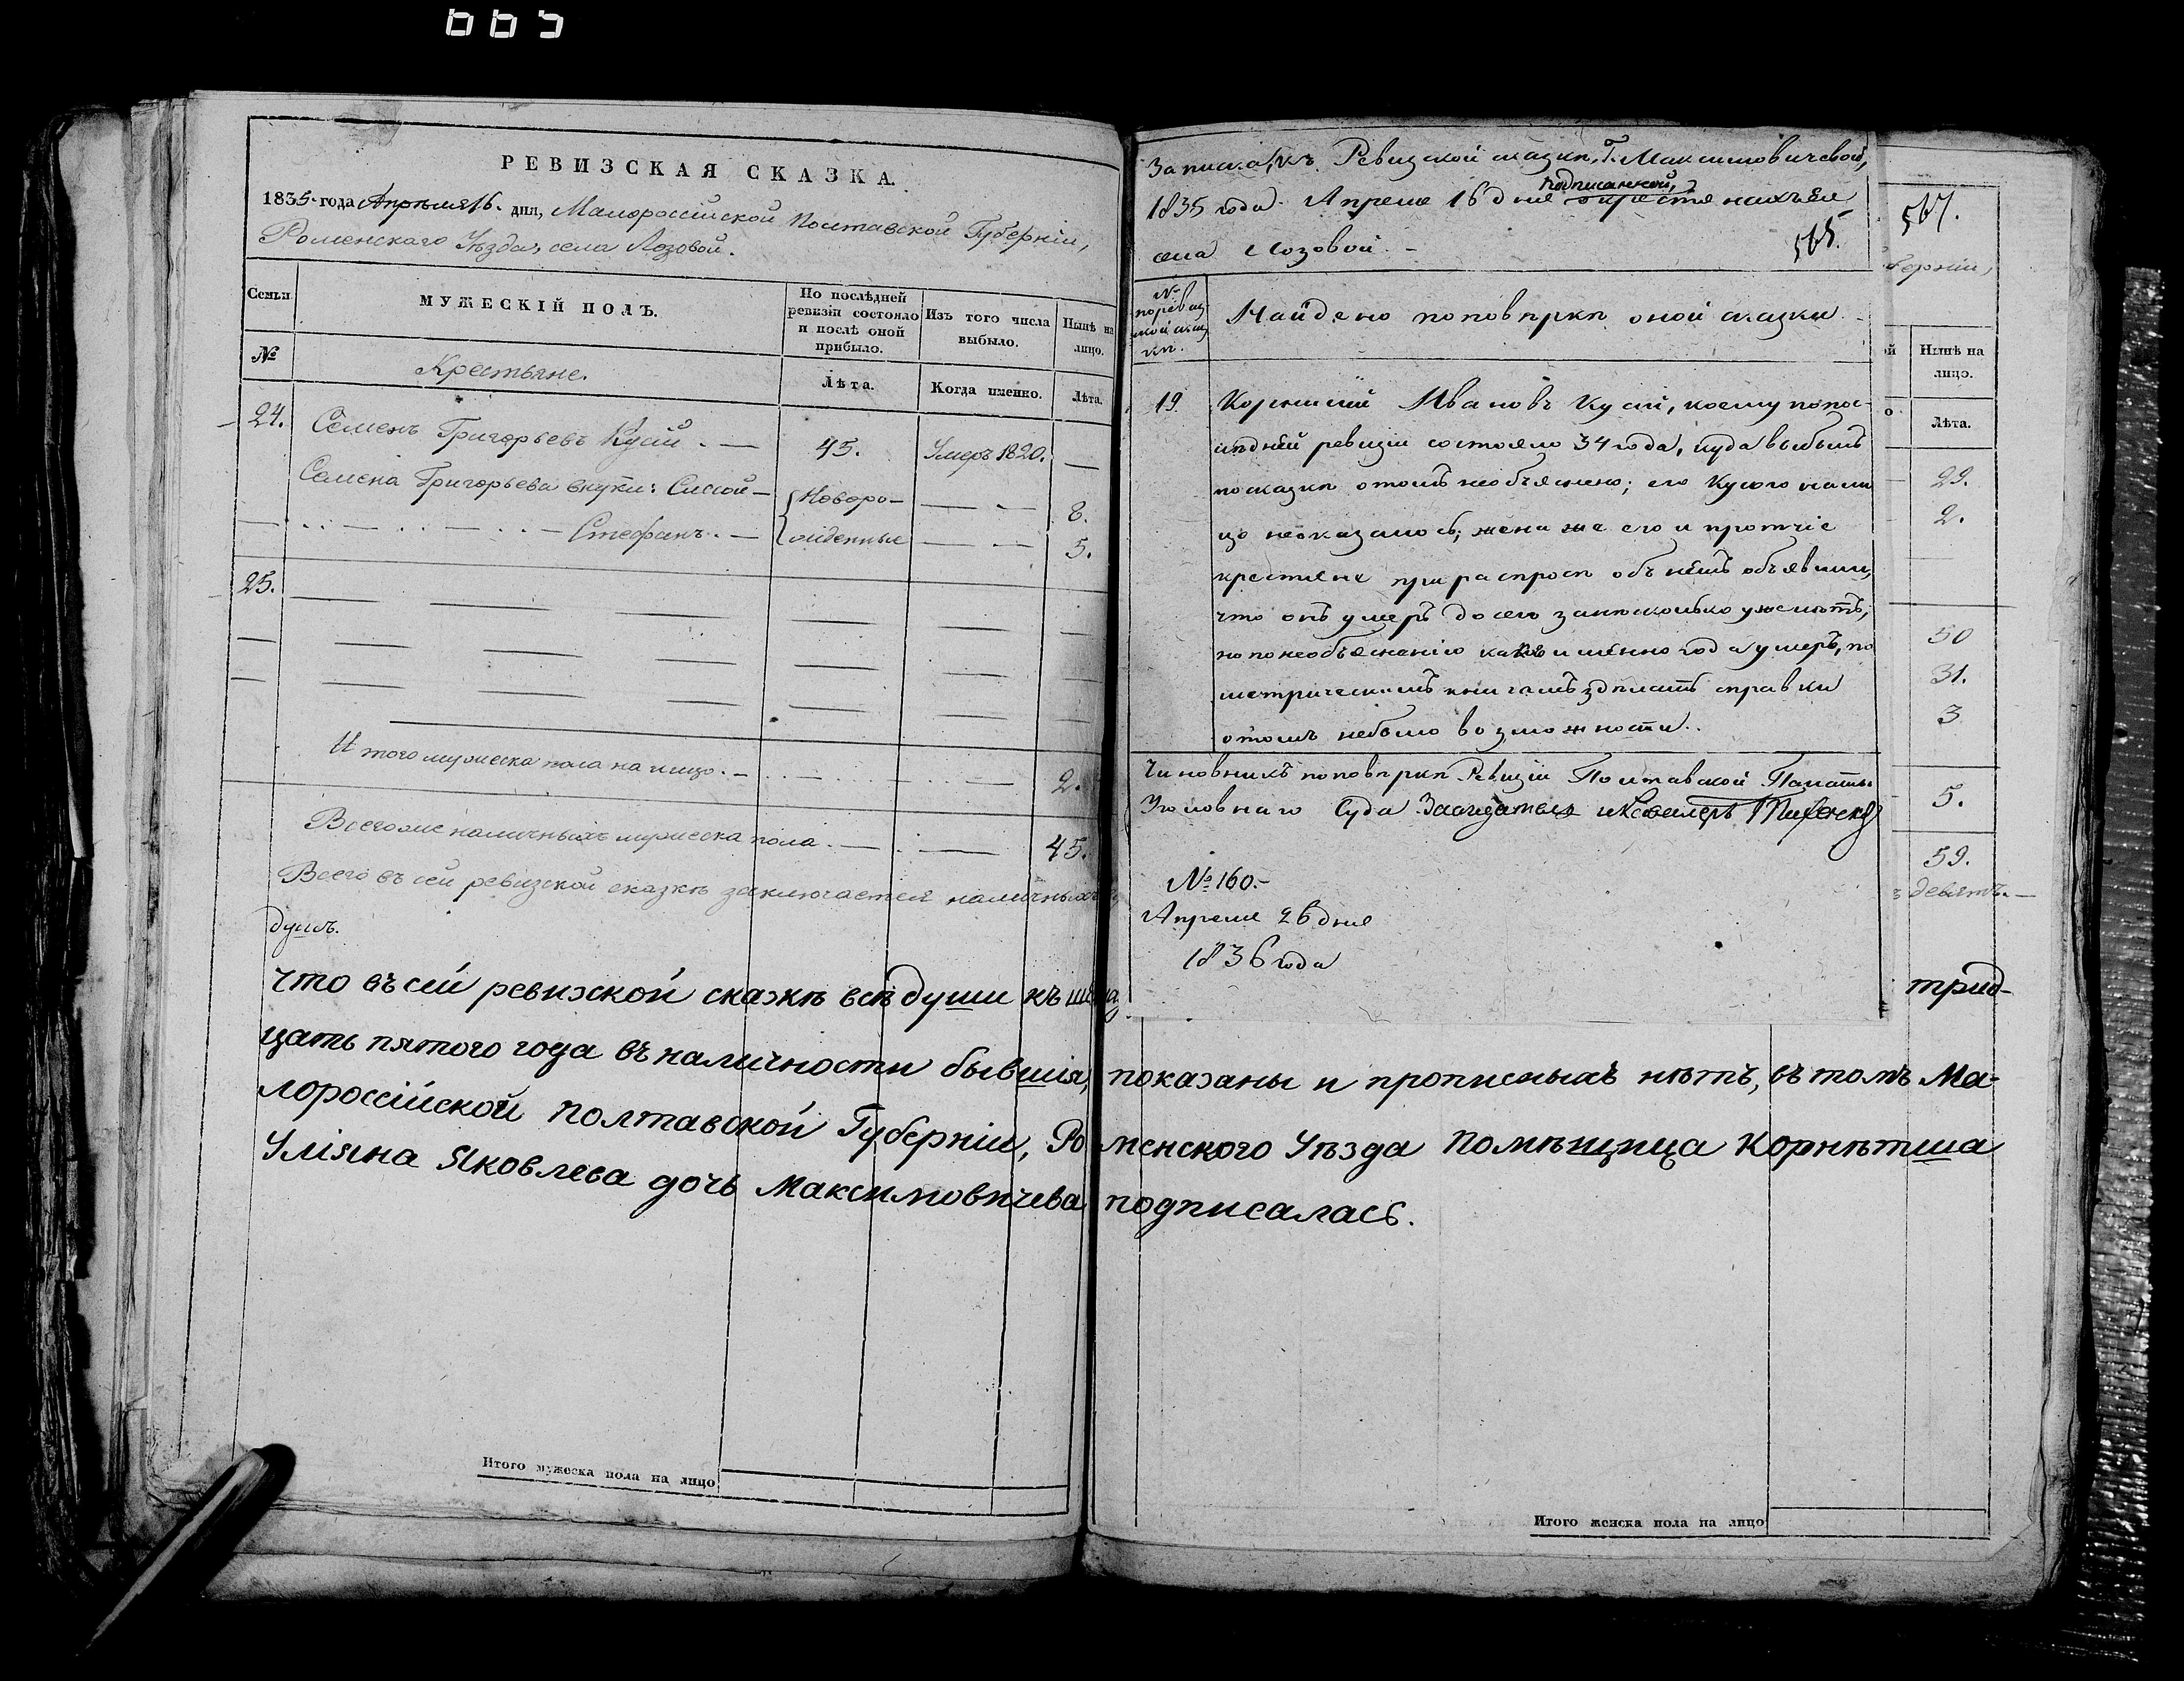 РЕВИЗСКАЯ СКАЗКА.
1835 года Апрѣля 16. дня, Малороссійской Полтавской Губерніи,
Роменскаго Уѣзда, села Лозовой.
Семьи
МУЖЕСКІЙ ПОЛЪ.
По послѣдней ревизіи состояло и послѣ оной прибыло.
Изъ того числа выбыло.
Нынѣ на лицо.
№
Крестьяне.
Лѣта.
Когда именно.
Лѣта.
24. Семенъ Григорьевъ Кусій. — 45. Умеръ 1820. —
Семена Григорьева внуки: Сисой — Новоро- — — 8.
Стефанъ. — жденные — — 5.
25.
Итого мужеска пола на лицо. — 2.
Всего же наличныхъ мужеска пола. — 45.
Всего въ сей ревизской сказкѣ заключается наличныхъ
душъ.
что въ сей ревизской сказкѣ всѣ души къ
цать пятого года въ наличности бывшія,
лороссійской Полтавской Губерніи, Ро
Уліяна Яковлева дочь Максимовичева
Итого мужеска пола на лицо
Записка къ Ревизской сказки, Г. Максимовичевой,
подписанной,
1835 года Апреля 16 дня
села Лозовой. —
565.
№ по ревизской сказки.
Найдено по поверки оной сказки
19. Корнилій Ивановъ Кусій, коему по пос-
ледней ревизіи состояло 34 года, куда выбылъ
по сказки о томъ необъяснено; его Кусого на ли
цо неоказалось; жена же его и протчіе
крестьяне при распросе объ немъ объявили,
что онъ умеръ до сего за несколько уже летъ,
но по необъяснению каково именно года умеръ, по
метрическимъ книгамъ зделать справки
о томъ небыло возможности.
Чиновникъ по поверки Ревизіи Полтавской Палаты
Уголовнаго Суда Заседатель и Кавалеръ
№ 160.
Апреля 26 дня
1836 года
567.
берніи,
ой
Нынѣ на лицо.
о
Лѣта.
29.
2.
50
31.
3
5.
59.
ъ девять. —
трид-
показаны и прописныхъ нѣтъ, въ томъ Ма-
менского Уѣзда Помѣщица Корнѣтша
подписалась.
Итого женска пола на лицо